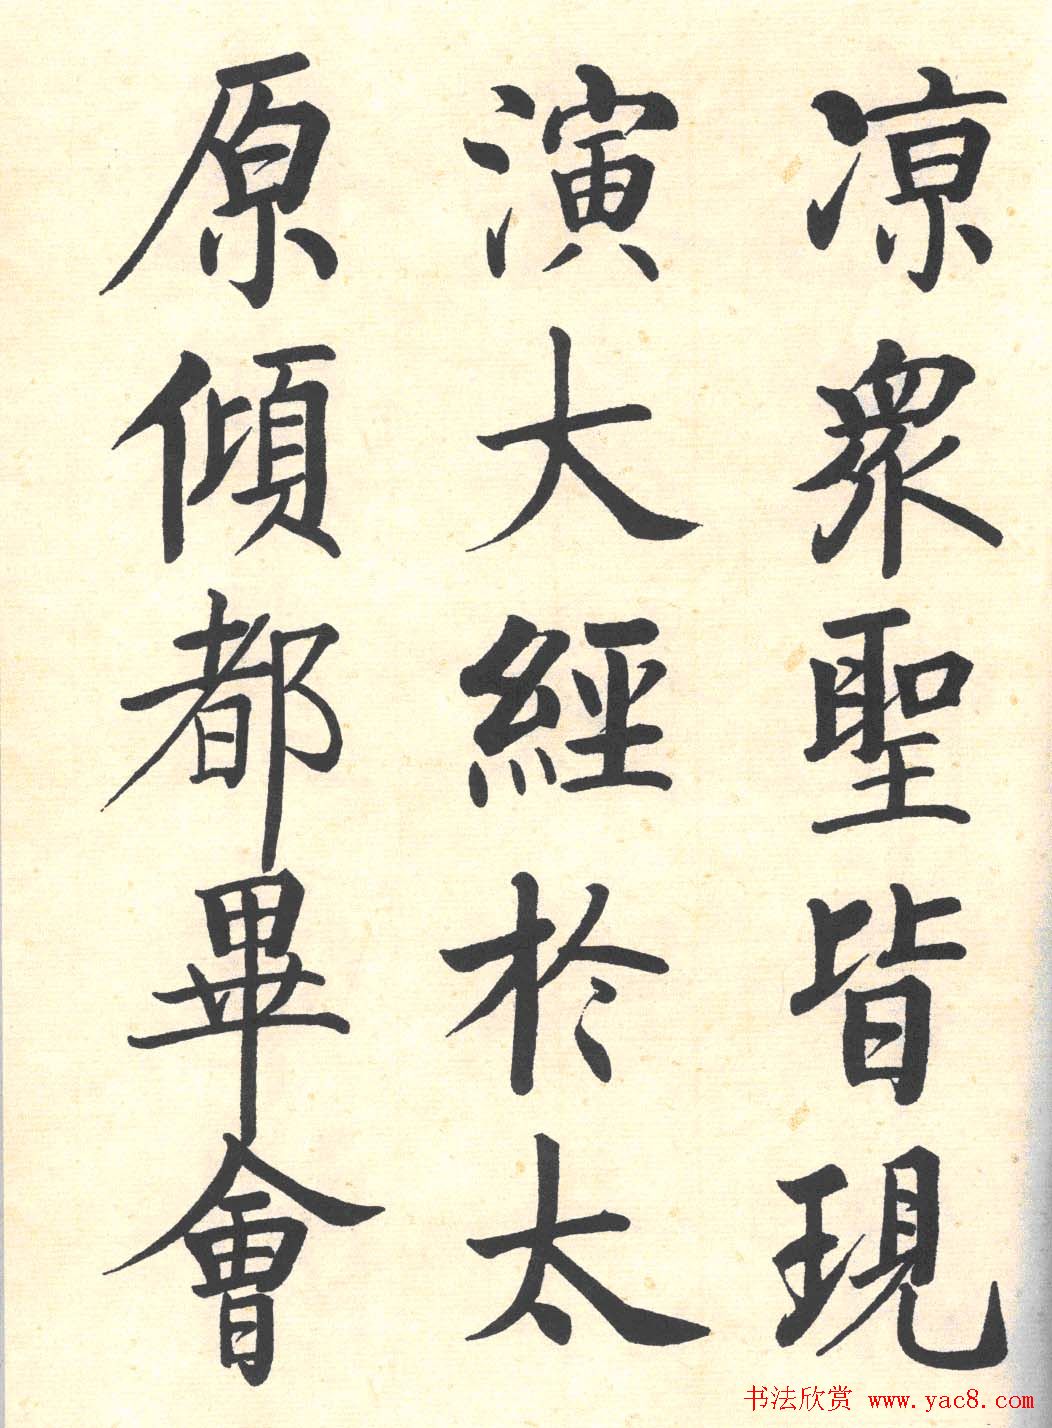 凉眾聖皆現
演大經於太
原傾都畢會
书法欣赏 www.yac8.com